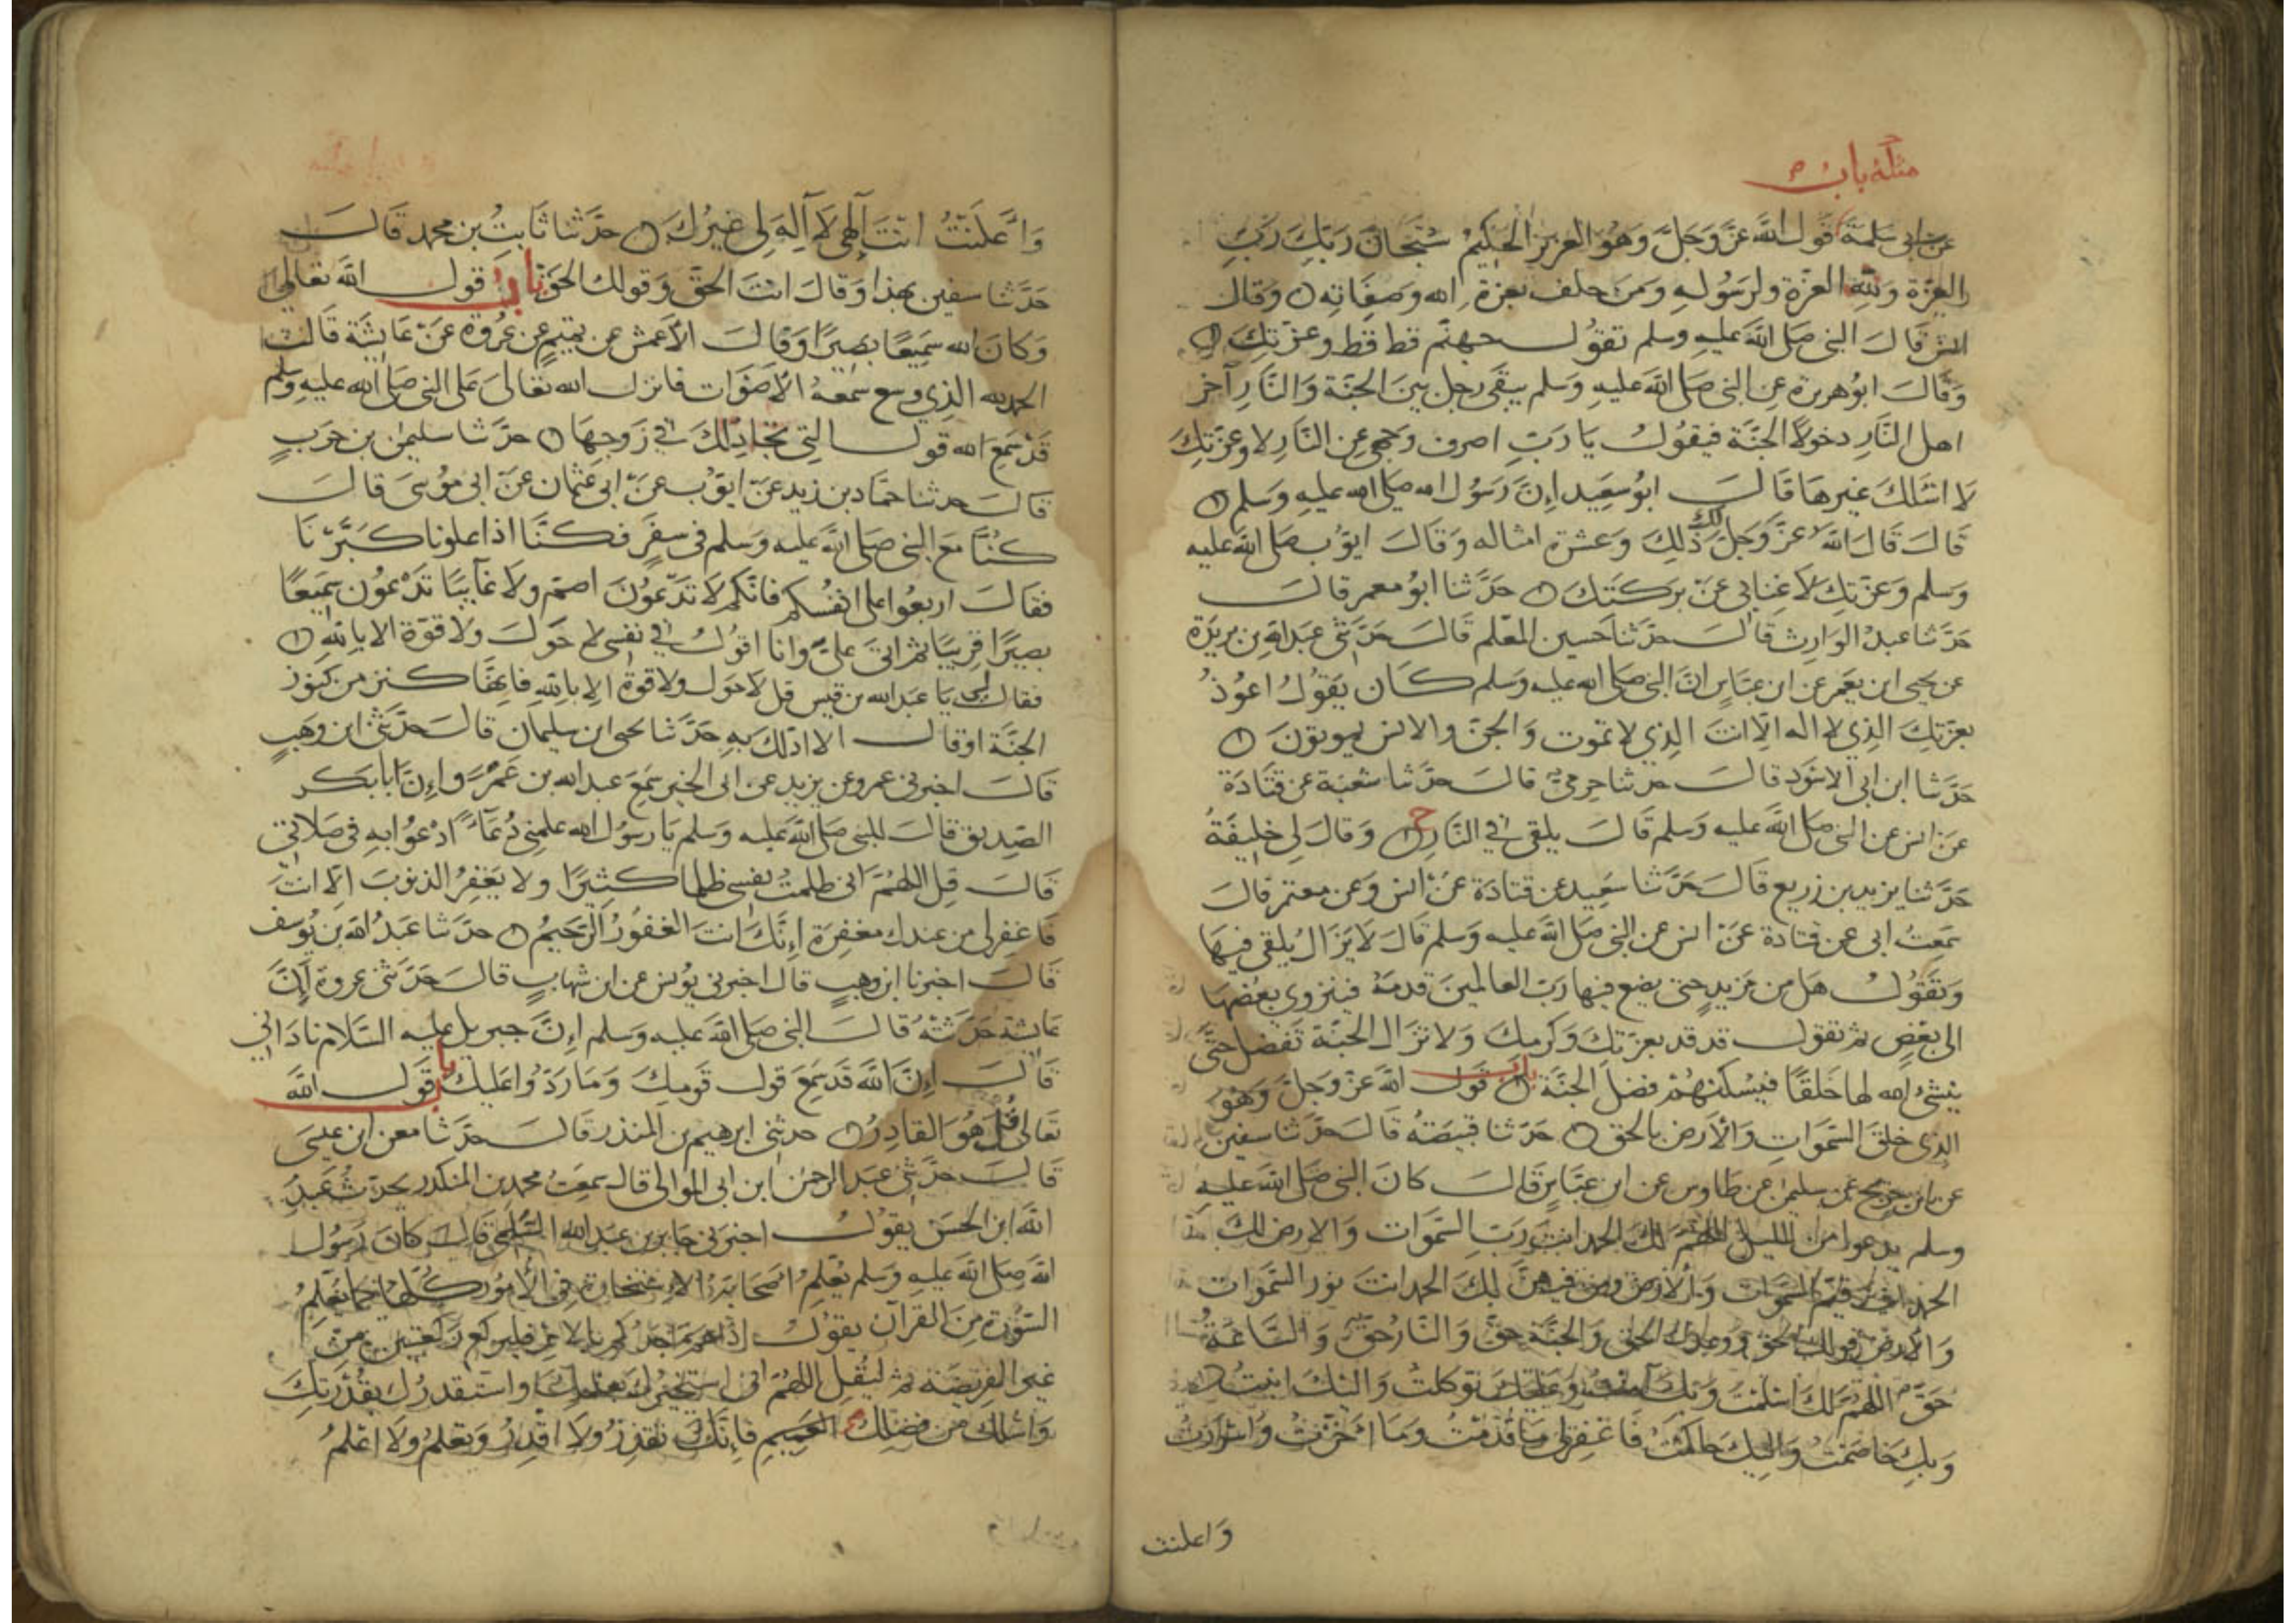 مثله باب
عن ابى سلمة قول الله عز وجل وهو العزيز الحكيم سبحان ربك رب
العزة ولله العزة ولرسوله ومن حلف بعزة الله وصفاته وقال
انس قال النبى صلى الله عليه وسلم تقول جهنم قط قط وعزتك
وقال ابو هريرة عن النبى صلى الله عليه وسلم يبقى رجل بين الجنة والنار آخر
اهل النار دخولا الجنة فيقول يا رب اصرف وجهى عن النار لا وعزتك
لا اسئلك غيرها قال ابو سعيد ان رسول الله صلى الله عليه وسلم
قال قال الله عز وجل لك ذلك وعشرة امثاله وقال ايوب صلى الله عليه
وسلم وعزتك لا غنابى عن بركتك حدثنا ابو معمر قال
حدثنا عبد الوارث قال حدثنا حسين المعلم قال حدثنى عبد الله بن بريدة
عن يحيى ابن يعمر عن ابن عباس ان النبى صلى الله عليه وسلم كان يقول اعوذ
بعزتك الذي لا اله الا انت الذي لا تموت والجن والانس يموتون
حدثنا ابن ابى الاسود قال حدثنا حرمي قال حدثنا شعبة عن قتادة
عن انس عن النبى صلى الله عليه وسلم قال يلقى في النار ح وقال لي خليفة
حدثنا يزيد بن زريع قال حدثنا سعيد عن قتادة عن انس وعن معتمر قال
سمعت ابى عن قتادة عن انس عن النبى صلى الله عليه وسلم قال لا يزال يلقى فيها
وتقول هل من مزيد حتى يضع فيها رب العالمين قدمه فينزوي بعضها
الى بعض ثم تقول قد قد بعزتك وكرمك ولا تزال الجنة تفضل حتى
ينشئ الله لها خلقا فيسكنهم فضل الجنة باب قول الله عز وجل وهو
الذي خلق السموات والارض بالحق حدثنا قبيصة قال حدثنا سفين
عن ابن جريج عن سليمن عن طاوس عن ابن عباس قال كان النبى صلى الله عليه
وسلم يدعوا من الليل اللهم لك الحمد انت رب السموات والارض لك
الحمد انت قيم السموات والارض ومن فيهن لك الحمد انت نور السموات
والارض قولك الحق ووعدك الحق والجنة حق والنار حق والساعة
حق اللهم لك اسلمت وبك آمنت وعليك توكلت واليك انبت
وبك خاصمت واليك حاكمت فاغفرلى ما قدمت وما اخرت واسررت
واعلنت
واعلنت انت الهى لا اله لى غيرك حدثنا ثابت بن محمد قال
حدثنا سفين بهذا وقال انت الحق وقولك الحق باب قول الله تعالى
وكان الله سميعا بصيرا وقال الاعمش عن تميم عن عروة عن عائشة قالت
الحمد لله الذي وسع سمعه الاصوات فانزل الله تعالى على النبى صلى الله عليه وسلم
قد سمع الله قول التي تجادلك في زوجها حدثنا سليمن بن حرب
قال حدثنا حماد بن زيد عن ايوب عن ابى عثمان عن ابى موسى قال
كنا مع النبى صلى الله عليه وسلم فى سفر فكنا اذا علونا كبرنا
فقال اربعوا على انفسكم فانكم لا تدعون اصم ولا غايبا تدعون سميعا
بصيرا قريبا ثم اتى علي وانا اقول في نفسى لا حول ولا قوة الا بالله
فقال لى يا عبد الله بن قيس قل لا حول ولا قوة الا بالله فانها كنز من كنوز
الجنة او قال الا ادلك به حدثنا يحيى ابن سليمان قال حدثنى ابن وهب
قال اخبرنى عمرو عن يزيد عن ابى الخير سمع عبد الله بن عمرو ان ابا بكر
الصديق قال للنبى صلى الله عليه وسلم يا رسول الله علمنى دعاء ادعوا به فى صلاتى
قال قل اللهم انى ظلمت نفسى ظلما كثيرا ولا يغفر الذنوب الا انت
فاغفرلى من عندك مغفرة انك انت الغفور الرحيم حدثنا عبد الله بن يوسف
قال اخبرنا ابن وهب قال اخبرنى يونس عن ابن شهاب قال حدثنى عروة ان
عائشة حدثته قال النبى صلى الله عليه وسلم ان جبريل عليه السلام نادانى
قال ان الله قد سمع قول قومك وما ردوا عليك باب قول الله
تعالى قل هو القادر حدثنى ابرهيم بن المنذر قال حدثنا معن ابن عيسى
قال حدثنى عبد الرحمن ابن ابى الموالى قال سمعت محمد بن المنكدر يحدث عبد
الله ابن الحسن يقول اخبرنى جابر بن عبد الله السلمى قال كان رسول
الله صلى الله عليه وسلم يعلم اصحابه الاستخارة فى الامور كلها كما يعلم
السورة من القرآن يقول اذا هم احدكم بالامر فليركع ركعتين من
غير الفريضة ثم ليقل اللهم انى استخيرك بعلمك واستقدرك بقدرتك
واسئلك من فضلك العميم فانك تقدر ولا اقدر وتعلم ولا اعلم